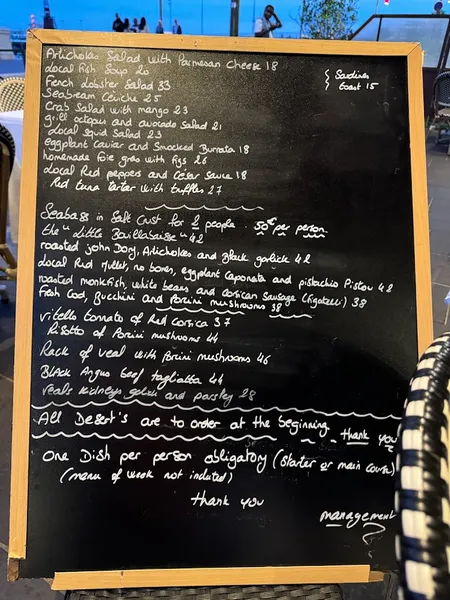 Artichokes Salad with Parmesan Cheese 18
Local Fish Soup 20
French Lobster Salad 33
Seabream Ceviche 25
Crab Salad with mango 23
grill octopus and avocado Salad 21
Local Squid Salad 23
eggplant caviar and Smocked Burrata 18
homemade Foie gras with figs 26
Local Red peppers and César sauce 18
Red tuna tartar with truffles 27
Sardines
toast 15
Seabass in Salt Crust for 2 people. 50€ per person
the "Little Bouillabaisse" 42
roasted john Dory, Artichokes and black garlick 42
Local Red Mullet, no bones, eggplant Caponata and pistachio Pistou 42
roasted monkfish, white beans and corsican sausage (figatelli) 38
Fresh Cod, Zucchini and Porcini mushrooms 38
vitello tonnato of Red Corsica 37
Risotto of Porcini mushrooms 44
Rack of veal with Porcini mushrooms 46
BLACK Angus beef tagliatta 44
veals kidneys garlic and parsley 28
All Desert's are to order at the beginning.
thank you
One Dish per person obligatory (starter or main course)
(menu of week not included)
thank you
management